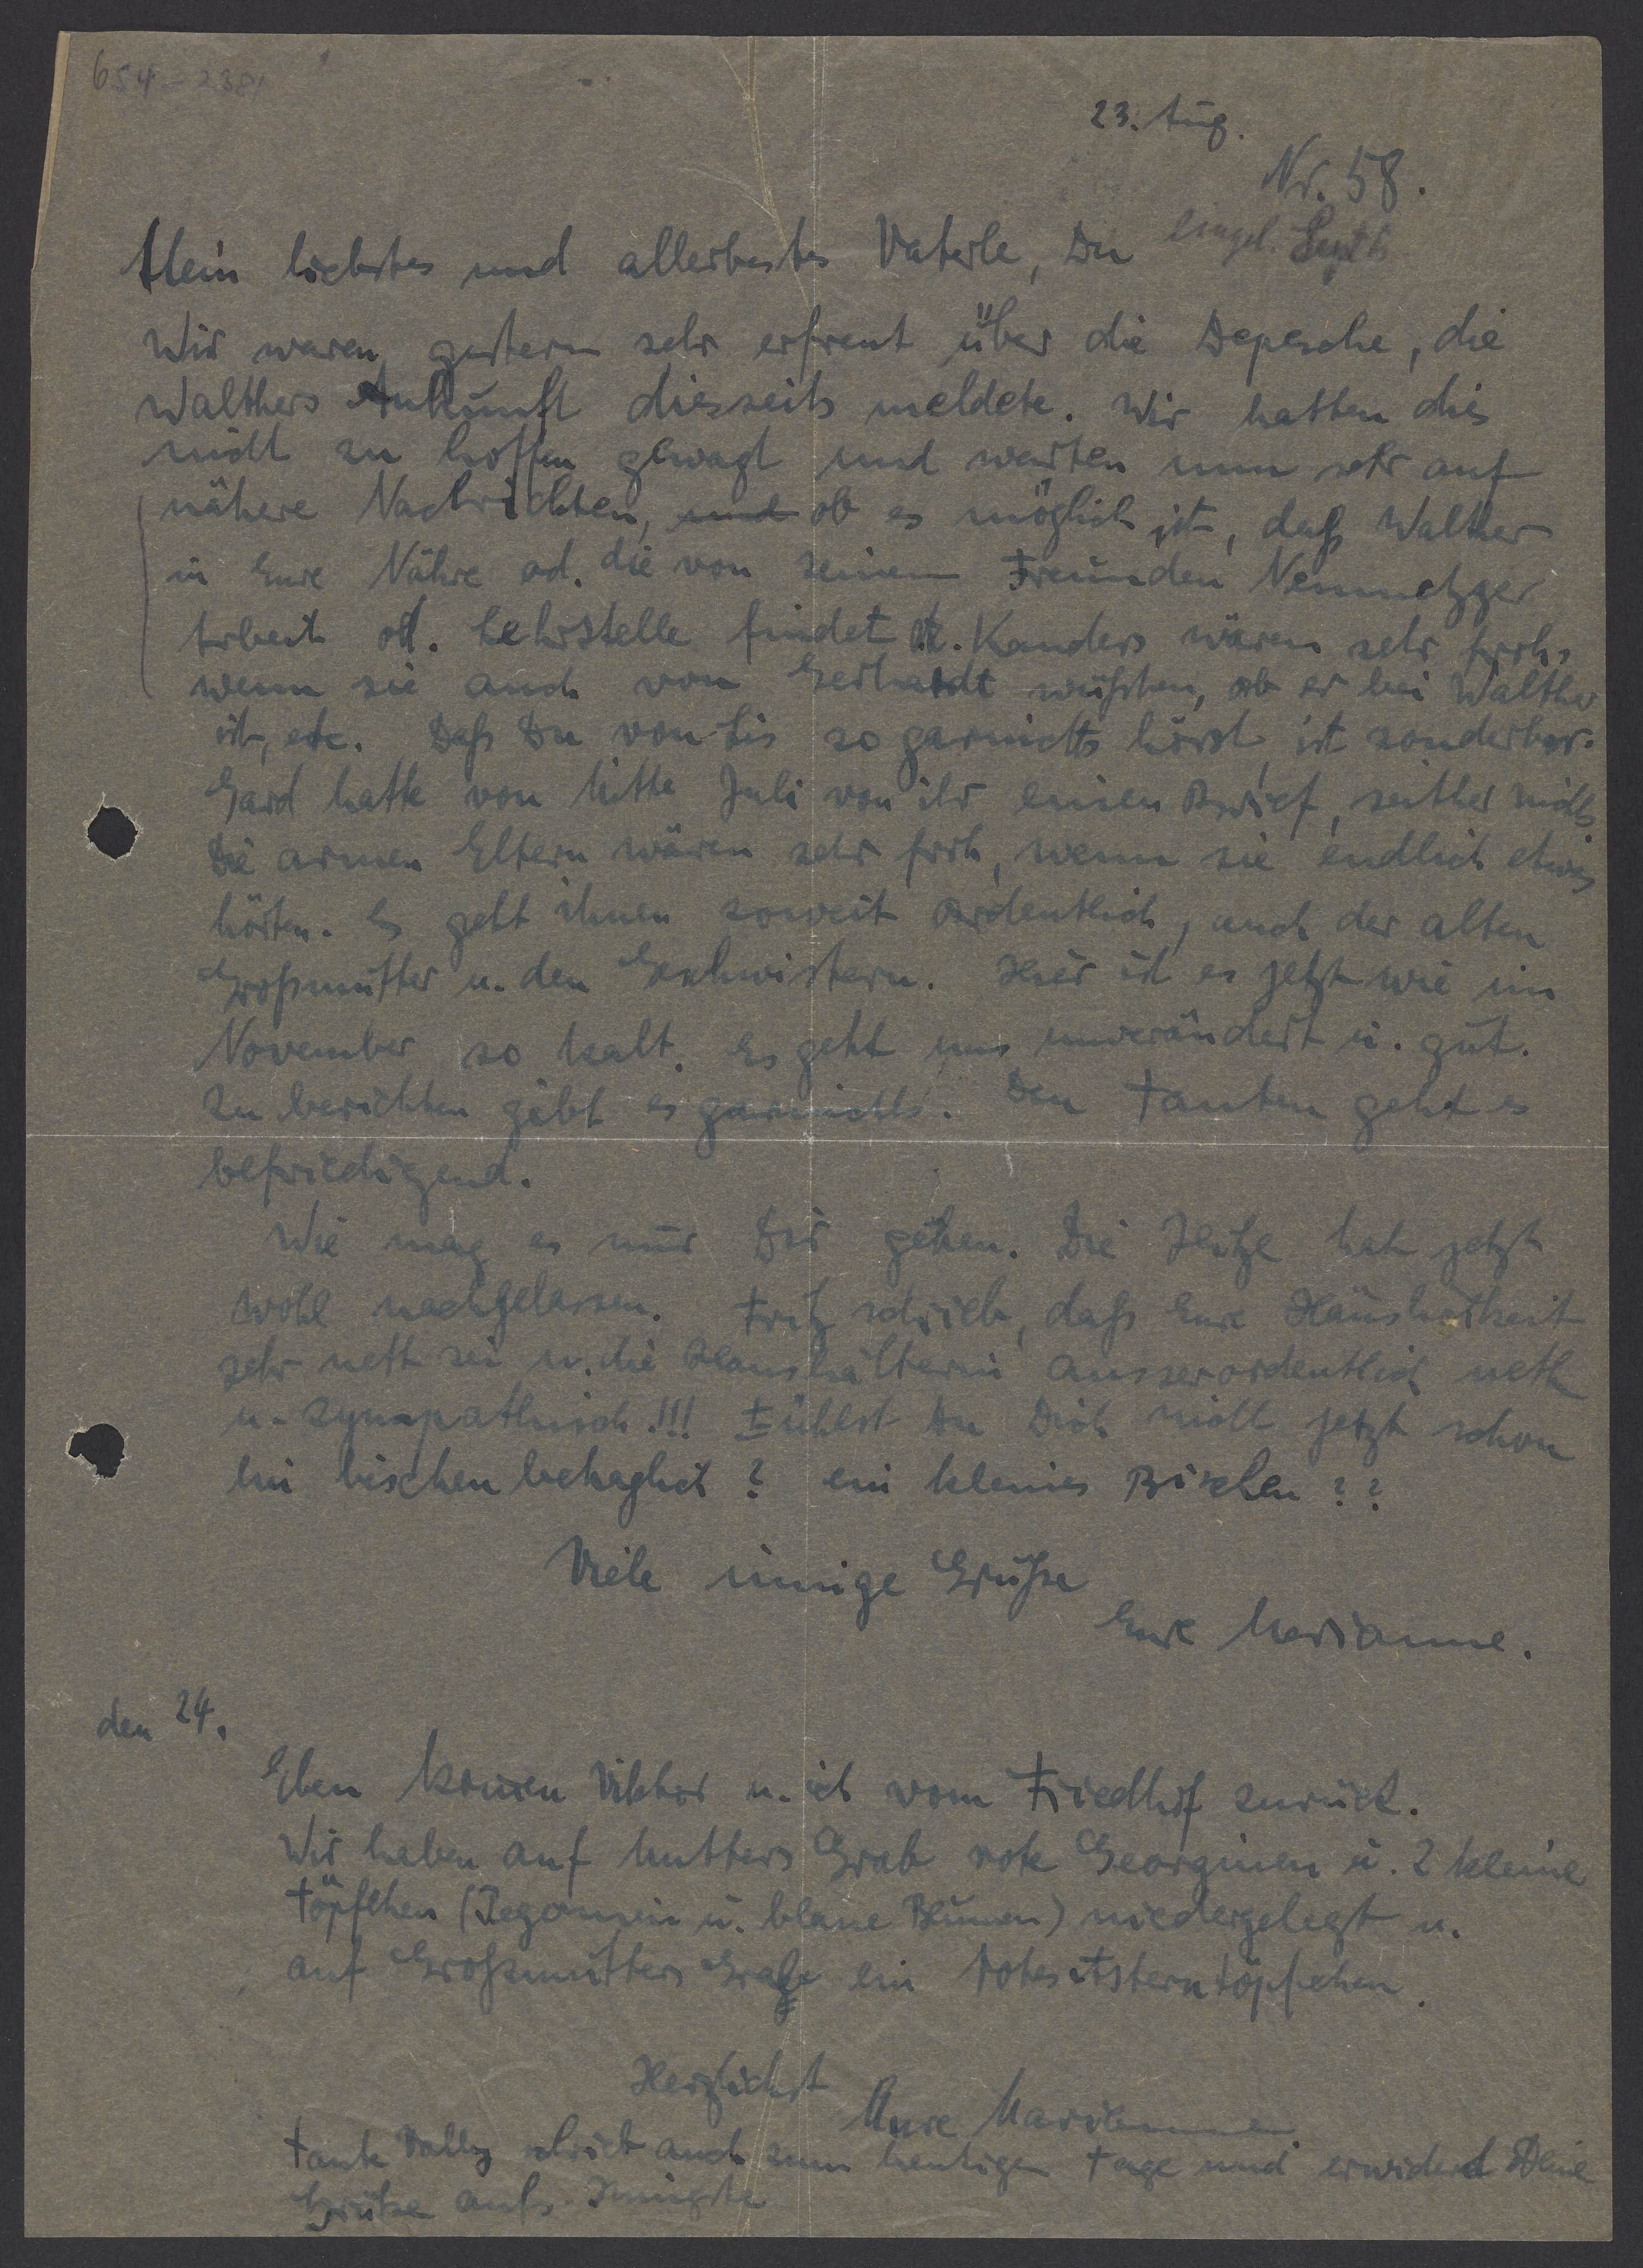 654-2381
23. Aug.
Nr. 58.
Mein liebstes und allerbestes Vaterle, Du
eingel. Sept.
Wir waren gestern sehr erfreut über die Depesche, die
Walthers Ankunft diesseits meldete. Wir hatten dies
nicht zu hoffen gewagt und warten nun sehr auf
nähere Nachrichten, und ob es möglich ist, daß Walther
in Eure Nähre od. die von seinem Freunden Nennmetzger
Arbeit od. Lehrstelle findet etc. Kanders wären sehr froh,
wenn sie auch von Gerhardt wüßten, ob er bei Walther
ist, etc. Daß Du von Lis so garnichts hörst, ist sonderbar.
Gard hatte von Mitte Juli von ihr einen Brief, seither nichts
Die armen Eltern wären sehr froh, wenn sie endlich etwas
hörten. Es geht ihnen soweit ordentlich, auch der alten
Großmutter u. den Geschwistern. Hier ist es jetzt wie im
November so kalt. Es geht uns unverändert u. gut.
Zu berichten gibt es garnichts. Den Tanten geht es
befriedigend.
Wie mag es nur Dir gehen. Die Hitze hat jetzt
wohl nachgelassen. Fritz schrieb, daß Eure Häuslichkeit
sehr nett sei u. die Haushälterin ausserordentlich nett
u. sympathisch!!! Fühlst Du Dich nicht jetzt schon
ein bischen behaglich? ein kleines Bischen??
Viele innige Grüße
Eure Marianne.
den 24.
Eben komen Viktor u. ich vom Friedhof zurück.
Wir haben auf Mutters Grab rote Georginen u. 2 kleine
Töpfchen (Begonien u. blaue Blumen) niedergelegt u.
auf Großmutters Grabe ein rotes Asterntöpfchen.
Herzlichst
Eure Marianne
Tante Vally schrieb auch zum heutigen Tage und erwidert Deine
Grüße aufs Innigste